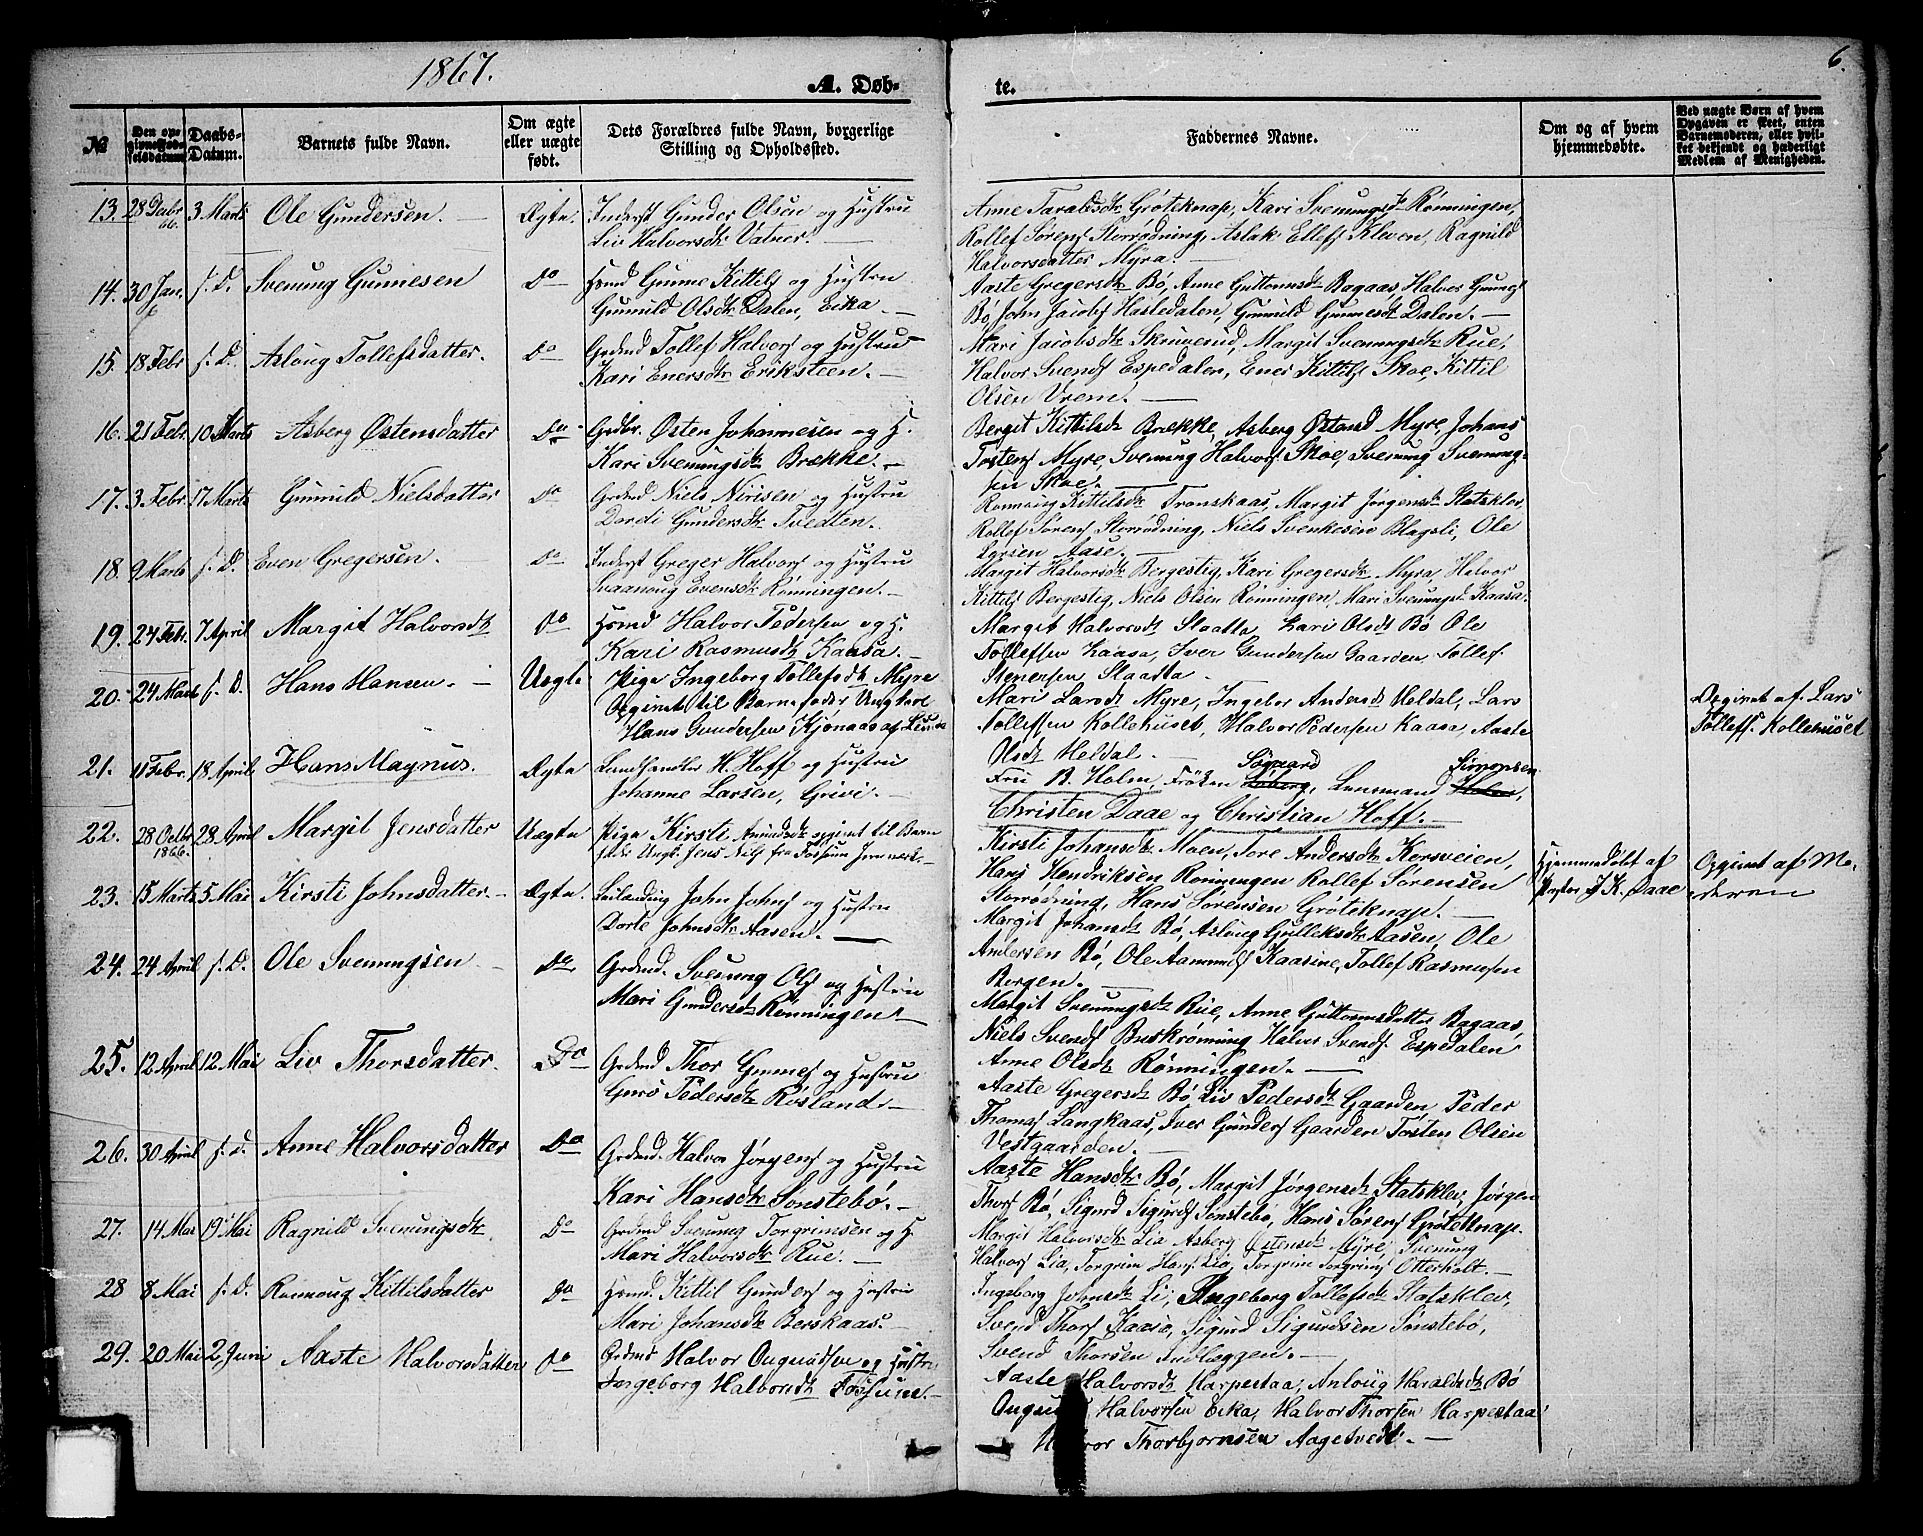 1867.
A. Døb-
te.
6.
No
Den op-
givne Fød-
selsdatum
Daabs-
Datum.
Barnets fulde Navn.
Om ægte
eller uægte
født.
Dets Forældres fulde Navn, borgerlige
Stilling og Opholdssted.
Faddernes Navne.
Om og af hvem
hjemmedøbte.
Ved uægte Børn af hvem
Opgaven er skeet, enten
Barnemoderen, eller hvil-
ket bekjendt og hæderligt
Medlem af Menigheden.
13. 28 Decbr 66. 3 Marts Ole Gundersen. Ægte. Inderst Gunder Olsen og Hustru
Liv Halvorsdtr Vatner.
Anne Taraldsdtr Grøteknap, Kari Svenungsdt Rønningen,
Rollef Sørens Storrødning, Aslak Ellefs Kleven, Ragnild
Halvorsdatter Myra.
14. 30 Jan. s. D. Svenung Gunnesen Do Hsmd Gunne Kittils og Hustru
Gunnild Olsdtr Dalen, Eika.
Aaste Gregersdtr Bø, Anne Guttormsdtr Bagaas, Halvor Gunnes
Bø, John Jacobs Hastedalen, Gunuld Gunnesdt Dalen.
15. 18 Febr s. D. Asloug Tollefsdatter. Do Grdmd Tollef Halvors og Hustru
Kari Enersdtr Eriksteen.
Mari Jacobsdt Skruverud, Margit Svenungsdtr Rue,
Halvor Svends Espedalen, Ener Kittils Skoe, Kittil
Olsen Vrem.
16. 21 Febr. 10 Marts Asberg Østensdatter Do Grdbr. Østen Johannesen og H.
Kari Svenungsdtr Brække.
Bergit Kittilsdtr Brække, Asberg Østensd Myre, Johans
Tostens Myre, Svenung Halvors Skoe, Svenung Svenung-
sen Skoe.
17. 3 Febr. 17 Marts Gunuld Nielsdatter Do Grdmd Niels Nirisen og Hustru
Dordi Gundersdtr Tvedten.
Rønnoug Kittilsdtr Transkaas, Margit Jørgensdt Statsklev,
Rollef Sørens Storrødning, Niels Svenkesen Blagsli, Ole
Larsen Aase.
18. 9 Marts s. D. Even Gregersen. Do Inderst Greger Halvors og Hustru
Svaanoug Evensdtr Rønningen.
Margit Halvorsdtr Bergestig, Kari Gregersdtr Myra, Halvor
Kittils Bergestig, Niels Olsen Rønningen, Mari Svenungsd. Kaasa.
19. 24 Febr. 7 April Margit Halvorsdtr Do Hsmd Halvor Pedersen og H.
Kari Rasmusdtr Kaasa.
Margit Halvorsdt Slaatta Kari Olsdt Bø Ole
Tollefsen Kaasa, Iver Gundersen Gaarden, Tollef
Stenersen Slaatta.
20. 24 Marts s. D. Hans Hansen. Uegte Pige Ingeborg Tollefsdtr Myre
Opgivet til Barnefader Ungkarl
Hans Gundersen Kjønaas af
Mari Larsdt Myre, Ingebor Andersdt Heldal, Lars
Tollefsen Kollehuset, Halvor Pedersen Kaasa, Aaste
Olsdt Heldal.
Opgivet af Lars
Tollefs. Kollehuset
21. 11 Febr. 18 April Hans Magnus. Ægte Landhandler H. Hoff og Hustru
Johanne Larsen, Grivi.
Søgaard Simonsen
Fru B. Holm, Frøken Løberg, Lensmand Holm,
Christen Daae og Christian Hoff.
22. 28 Octbr 1866. 28 April Margit Jensdatter Uægte Pige Kirsti Amundsdtr opgivet til Barne
fader Ungk. Jens Nils fra Fossum Jernværk.
Kirsti Johansdtr Moen, Tore Andersdtr Korsveien,
Hans Hendriksen Rønningen Rollef Sørensen
Storrødning, Hans Sørensen Grøteknap.
Hjemmedøbt af
Pastor J K. Daae
Opgivet af Mo-
deren
23. 15 Marts 5 Mai Kirsti Johnsdatter. Ægte. Leilænding John Johns og Hustru
Dorte Johnsdtr Aasen.
Margit Johansdtr Bø, Asloug Gulleksdtr Aasen, Ole
Andersen Bø, Ole Aamunds Kaasine, Tollef Rasmusen
Bergen.
24. 24 April s. D. Ole Svenungsen Do Grdmd. Svenung Ols og Hustru
Mari Gundersdtr Rønningen.
Margit Svenungsdtr Rue, Anne Guttormsdatter Bagaas,
Niels Svends Buskrønning Halvor Svends. Espedalen
Anne Olsdtr Rønningen.
25. 12 April 12 Mai Liv Thorsdatter. Do Grdmd Thor Gunnes og Hustru
Guro Pedersdtr Røsland.
Aaste Gregersdtr Bø, Liv Pedersdtr Gaarden Peder
Thomas Langkaas, Iver Gunders Gaarden Tosten Olsen
Vestgaarden.
26. 30 April s. d. Anne Halvorsdatter Do Grdmd. Halvor Jørgens og Hustru
Kari Hansdtr Sønstebø.
Aaste Hansdtr Bø, Margit Jørgensdtr Statsklev, Jørgen
Thors Bø, Sigurd Sigurds Sønstebø, Hans Sørens Grøteknap.
27. 14 Mai 19 Mai Ragnild Svenungsdtr Do Grdmd Svenung Torgrimsen og H.
Mari Halvorsdtr Rue.
Margit Halvorsdtr Lia Asberg Østensdt Myre, Svenung
Halvors Lia, Torgrim Hans Lia, Torgrim Torgrims Otterholt.
28 8 Mai s. D. Rønnoug Kittilsdatter Do Hsmd. Kittil Gunders og Hustru
Mari Johansdtr Berskaas.
Ingeborg Johnsdtr Li, Ingeborg Tollefsdtr Statsklev,
Svend Thors Kaasa, Sigurd Sigurdsen Sønstebø,
Svend Thorsen Indlæggen.
29. 20 Mai 2 Juni Aaste Halvorsdatter Do Grdmd Halvor Ougundsen og Hustru
Ingeborg Halvorsdt Fossune.
Aaste Halvorsdtr Harpestaa, Anloug Haraldsdtr Bø
Halvorsen Eika, Halvor Thorsen Harpestaa
Halvor Thorbjørnsen Aagetvedt.